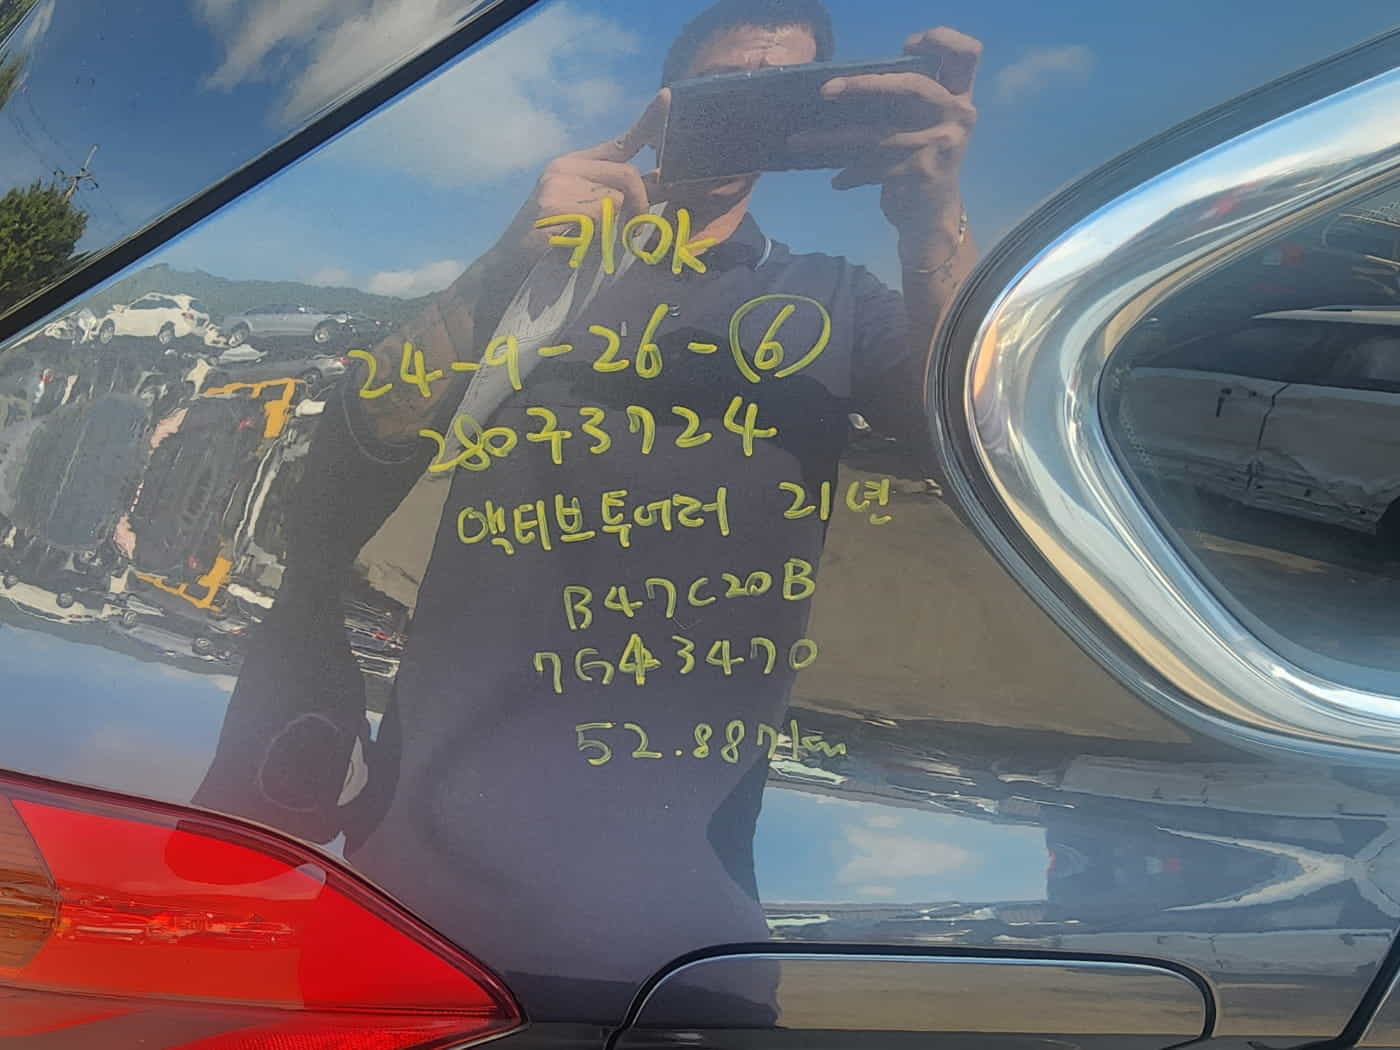 키OK
24-9-26-⑥
280구3724
액티브투어러 21년
B47C20B
7G43470
52.887km